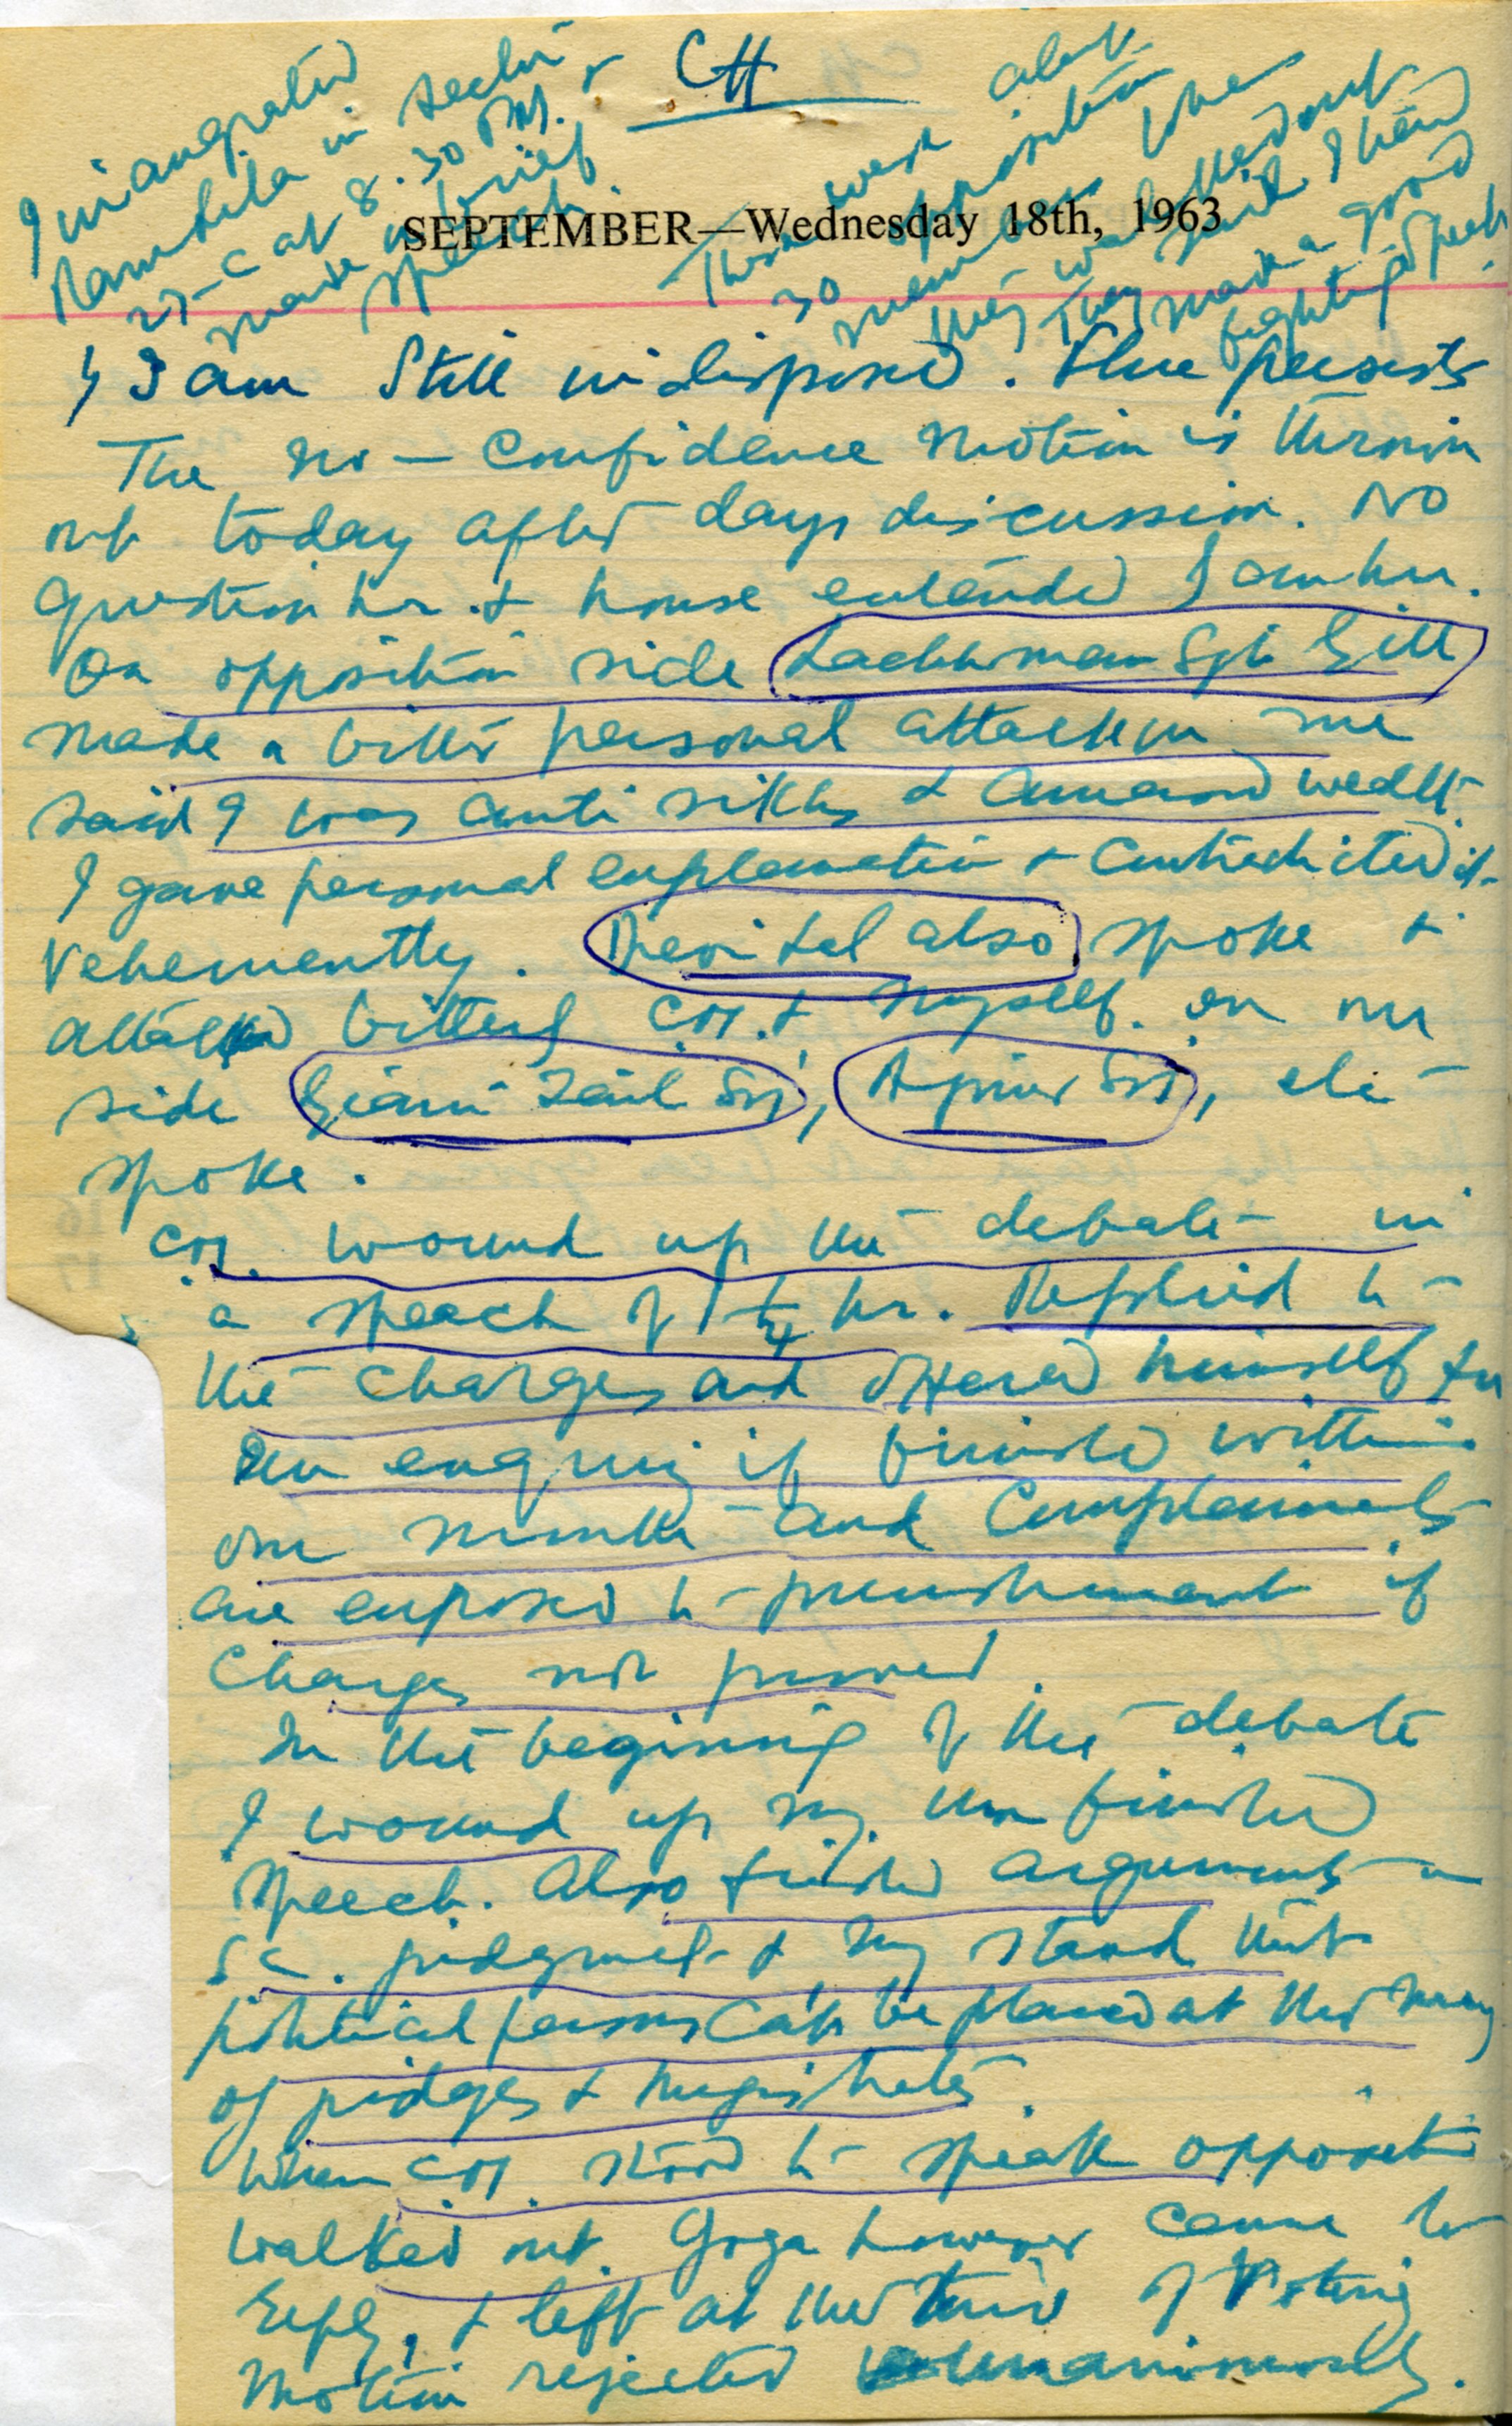 CH
Inaugurated
Ramlila in Sector
27-C at 8.30 PM. &
made a brief
speech.
There were about
30 opposition
members when
they walked out
They said. I heard
made a good
fighting speech.
SEPTEMBER—Wednesday 18th, 1963
I am Still indisposed. Flue persists
The no-Confidence motion is thrown
out today after days discussion. No
question hr. & house extended 1 am hr.
On opposition side Lachhman Sgh Gill
made a bitter personal attack on me
said I was anti sikhs & amassed wealth.
I gave personal explanation & Contradicted it
vehemently. Devi Lal also spoke &
attacked bitterly C.M. & myself. on our
side Giani Zail Sgh, Ajmer Sgh, etc
spoke.
C.M. wound up the debate in
a speech of 1 1/4 hr. Replied to
the charges and offered himself for
an enquiry if finished within
one month and Complainants
are exposed to punishment if
Charges not proved.
In the beginning of the debate
I wound up my un finished
speech. Also finished arguments on
S.C. judgment & my stand that
political persons can't be placed at the mercy
of judges & magistrates.
When C.M. stood to speak opposition
walked out. Goga however came to
reply, & left at the time of voting
Motion rejected unanimously.